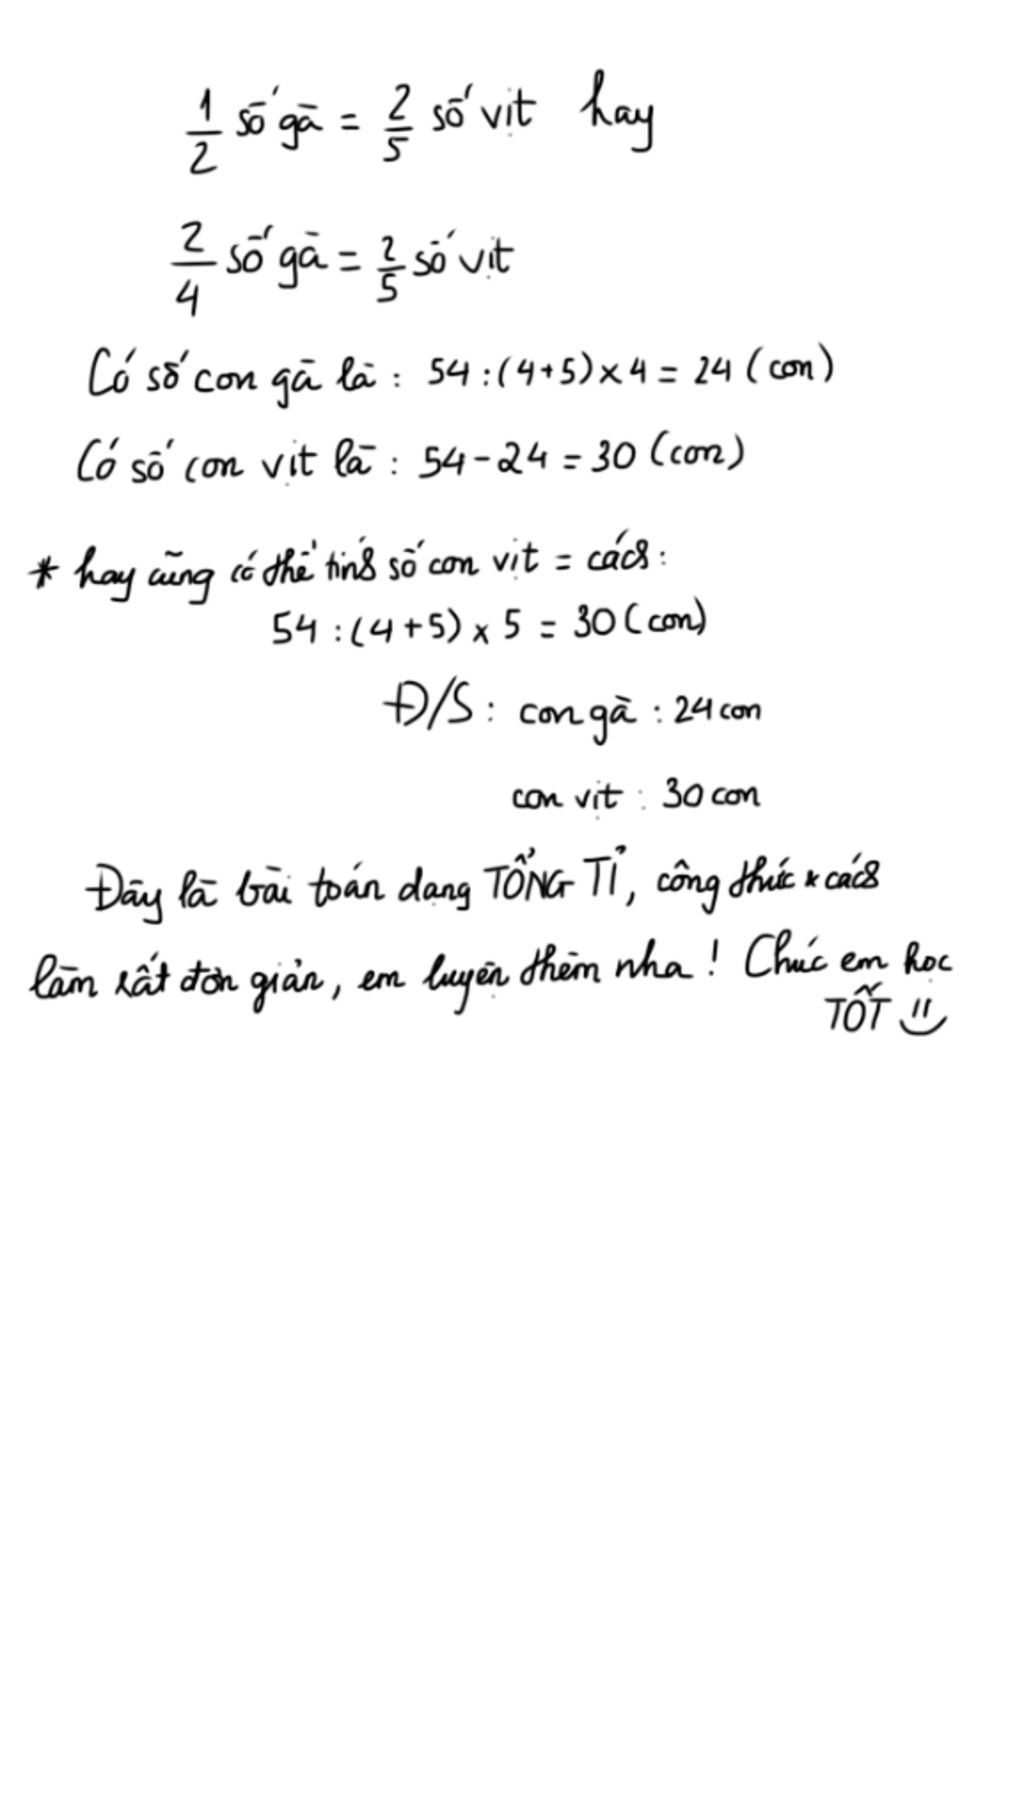 1/2 số gà = 2/5 số vịt hay
2/4 số gà = 2/5 số vịt
Có số con gà là : 54 : (4+5) x 4 = 24 (con)
Có số con vịt là : 54 - 24 = 30 (con)
* hay cũng có thể tính số con vịt = cách :
54 : (4+5) x 5 = 30 (con)
Đ/S : con gà : 24 con
con vịt : 30 con
Đây là bài toán dạng TỔNG TỈ, công thức x cách
làm rất đơn giản, em luyện thêm nha ! Chúc em học
TỐT